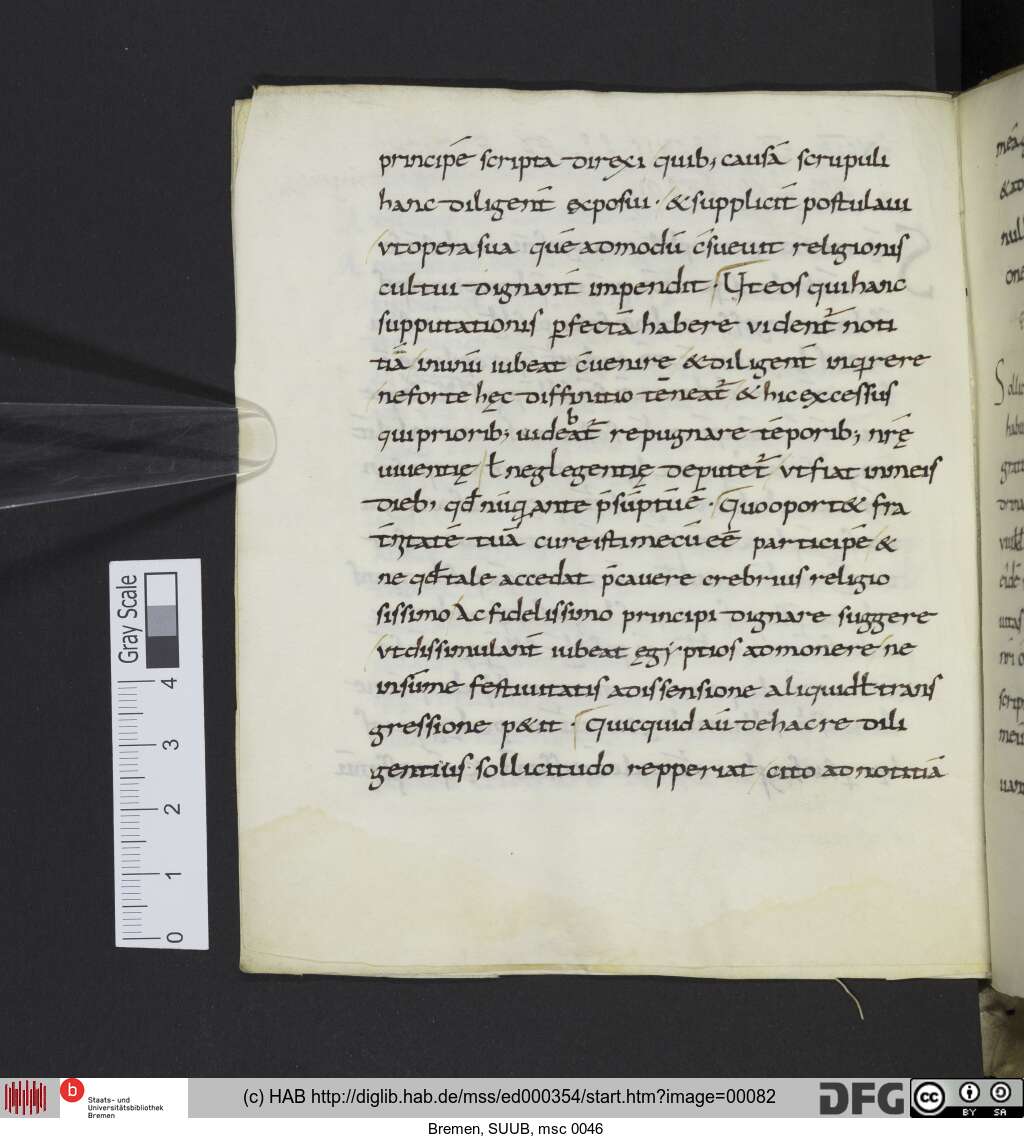 principē scripta direxi quib; causā scrupuli
hanc diligent̄ exposui · & supplicit̄ postulaui
vt opera sua quē admodū c̄sueuit religionis
cultui dignant̄ impendit · Vt eos qui hanc
supputationis ꝑfectā habere vident̄ noti
tiā in unū iubeat c̄uenire & diligent̄ inqrere
ne forte hęc diffinitio tēneat̄ & hic excessus
qui priorib; uideabt̄ repugnare tēporib; nrę̄
uiuentię ł neglegentię deputet̄ vt fiat in meis
dieb; qd̄ nūq ante p̄sūptūē · Quo oport& fra
t̄nitatē tuā cure isti mecū eē participē &
ne qd̄ tale accedat p̄cauere crebrius religio
sissimo Ac fidelissimo principi dignare suggere
vt dissimulant̄ iubeat ęgyptios admonere ne
in sūme festiuitatis a dissensione aliquid ł trans
gressione p&it · Quicquid aū de hac re dili
gentius sollicitudo repperiat cito ad notitiā
Gray Scale
4
3
2
1
0
b
Staats- und
Universitätsbibliothek
Bremen
(c) HAB http://diglib.hab.de/mss/ed000354/start.htm?image=00082
DFG
cc
BY SA
Bremen, SUUB, msc 0046